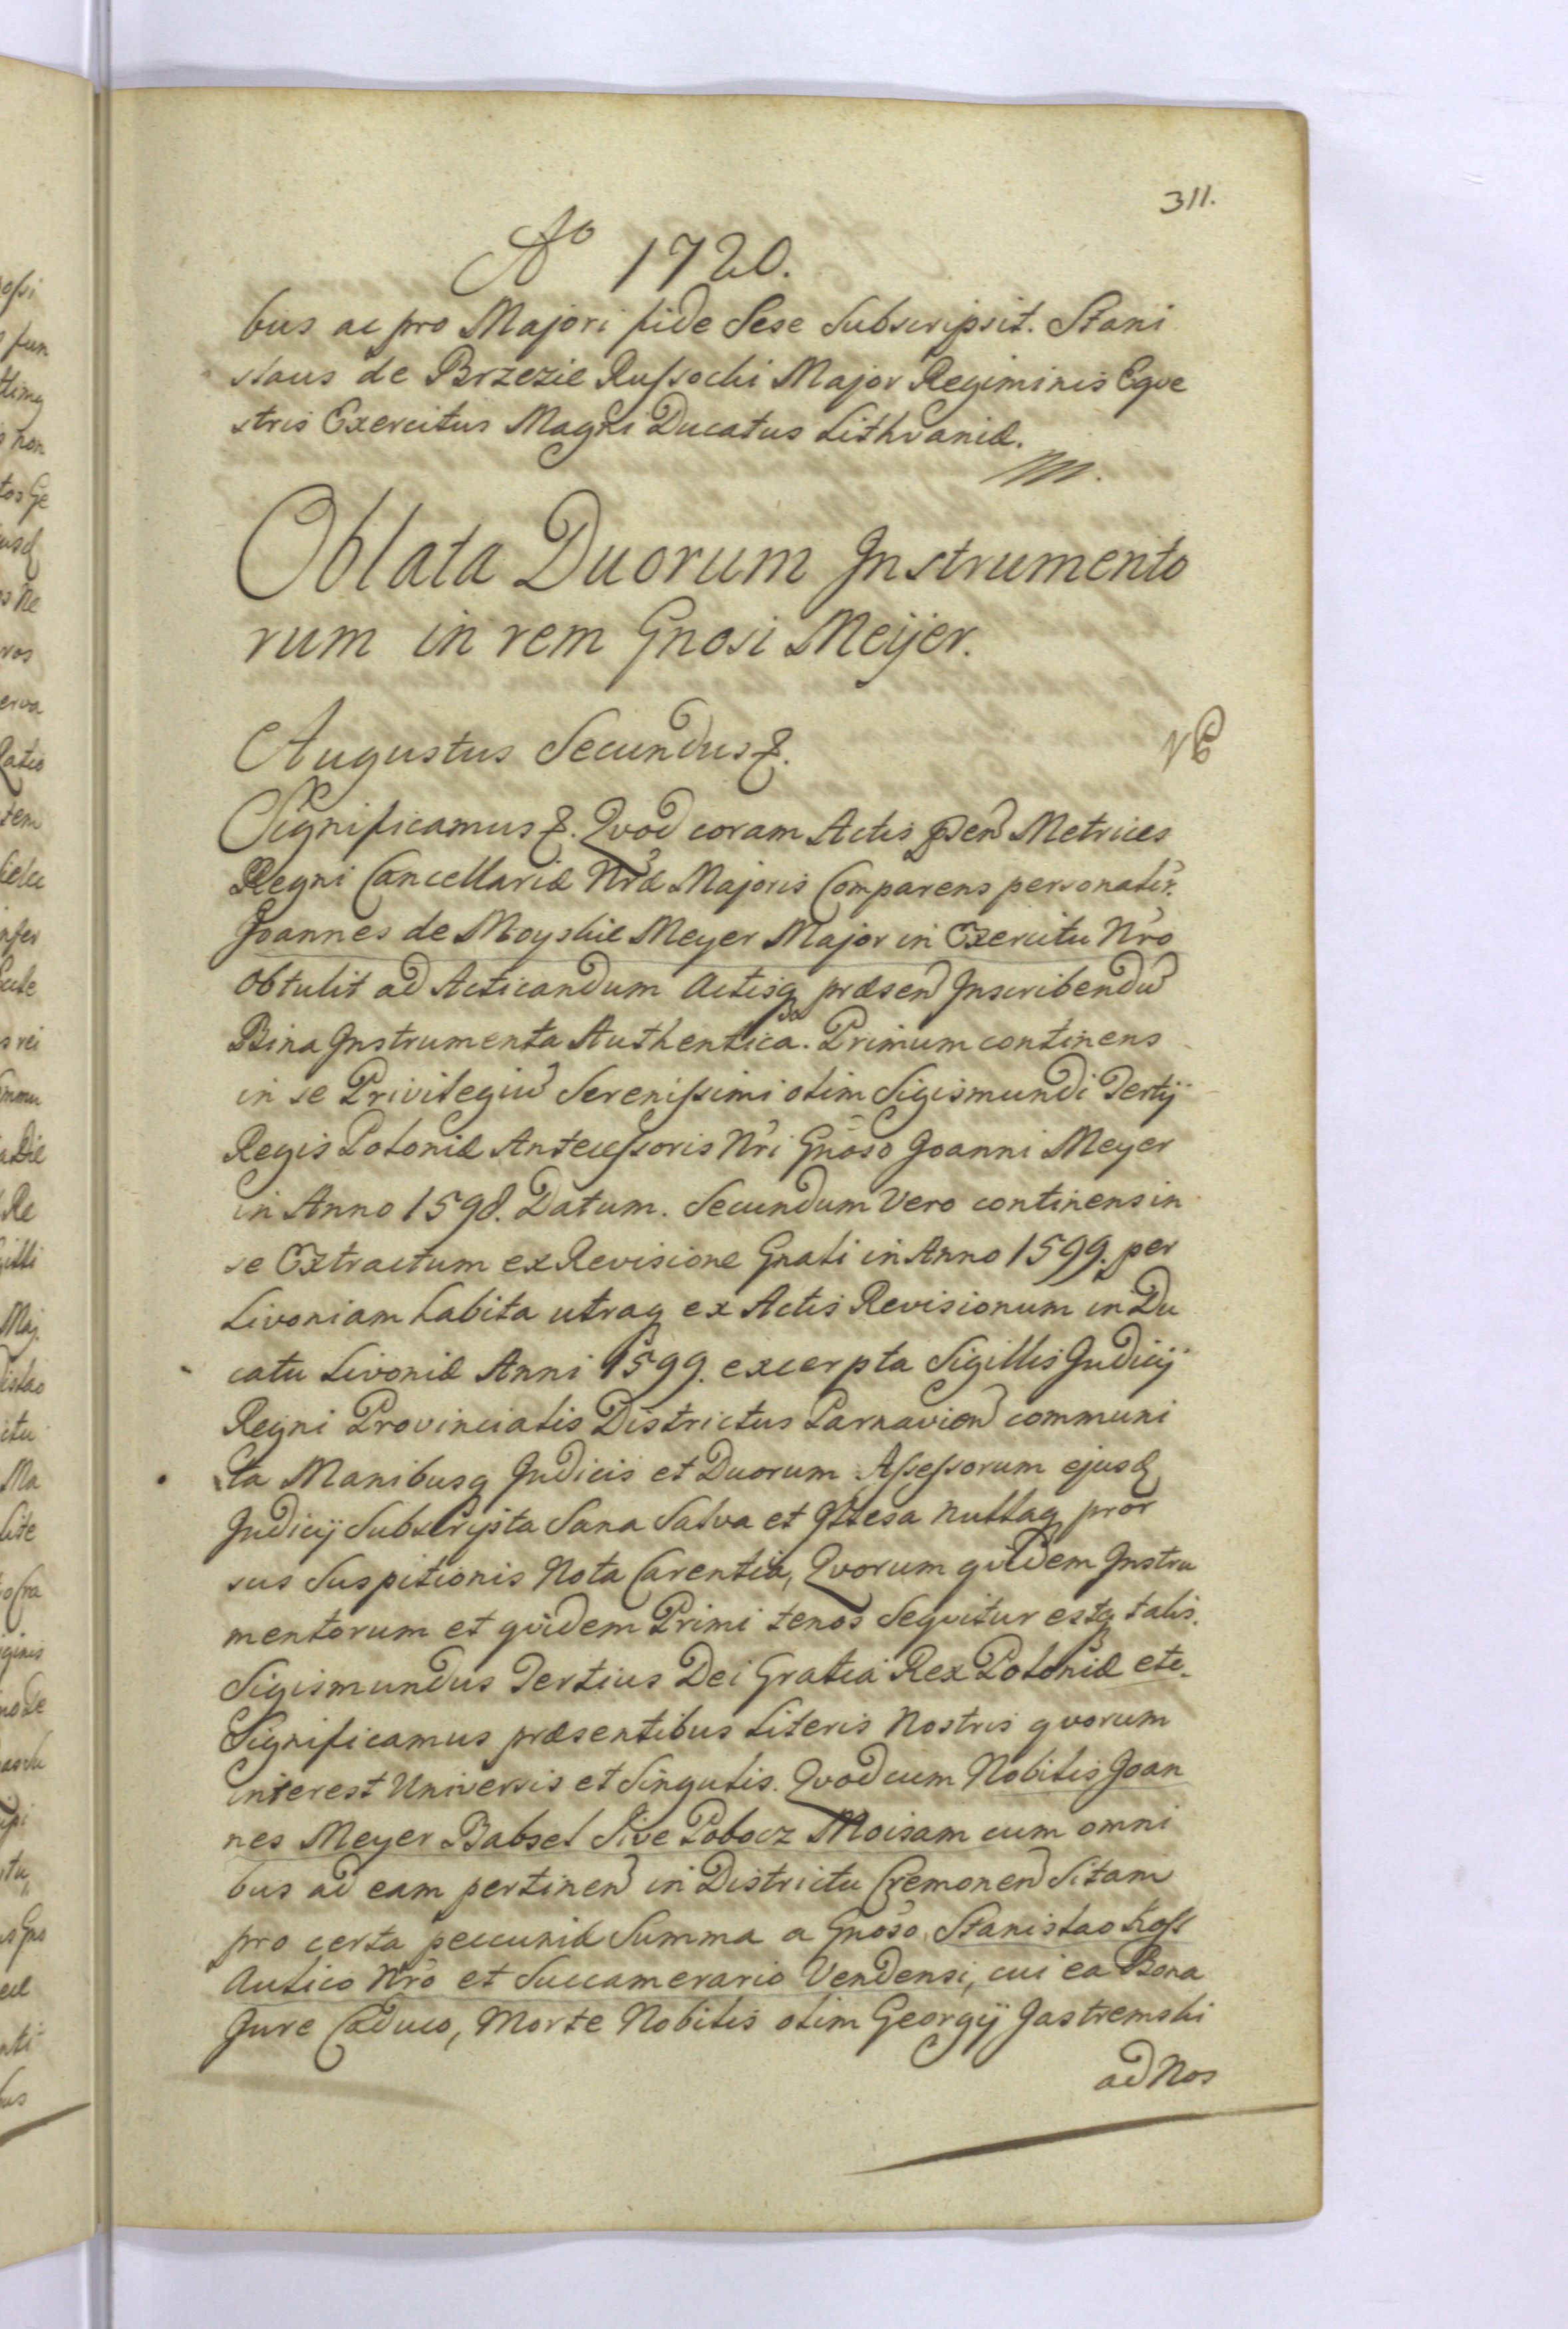 311.
Aº 1720.
bus ac pro Majori fide Sese Subscripsit. Stani
slaus de Brzezie Russocki Major Regiminis Eqve
stris Exercitus Magni Ducatus Lithvaniæ.
m.
Oblata Duorum Instrumento
rum in rem Gnosi Meijer.
Augustus Secundus &.
NB
Significamus &. Qvod coram Actis pñen Metrices
Regni Cancellariæ Nræ Majoris Comparens personalir.
Joannes de Moyskie Meyer Major in Exercitu Nro
obtulit ad Acticandum Actisq præsen Inscribendũ
Bina Instrumenta Authentica. Primum continens
in se Privilegiũ Serenissimi olim Sigismundi Tertij
Regis Poloniæ Antecessoris Nri Gnoso Joanni Meyer
in Anno 1598. Datum. Secundum Vero continens in
se Extractum ex Revisione Gnali in Anno 1599. per
Livoniam habita utraq ex Actis Revisionum in Du
catu Livoniæ Anni 1599. excerpta Sigillis Judicij
Regni Provincialis Districtus Parnavien communi
ta Manibusq Judicis et Duorum Assessorum ejusd
Judicij Subscripta Sana Salva et Illesa nullaq pror
sus Suspitionis Nota Carentia, Qvorum qvidem Instru
mentorum et qvidem Primi tenos Seqvitur estq talis.
Sigismundus Tertius Dei Gratia Rex Poloniæ etc.
Significamus præsentibus Literis Nostris qvorum
interest Universis et Singulis. Qvod cum Nobilis Joan
nes Meyer Babsel Sive Pobocz Moisam cum omni
bus ad eam pertinen in Districtu Cremonen Sitam
pro certa peccuniæ Summa a Gnoso Stanislao Koss
Aulico Nro et Succamerario Vendensi, cui ea Bona
Jure Caduco, Morte Nobilis olim Georgij Jastremski
ad Nos